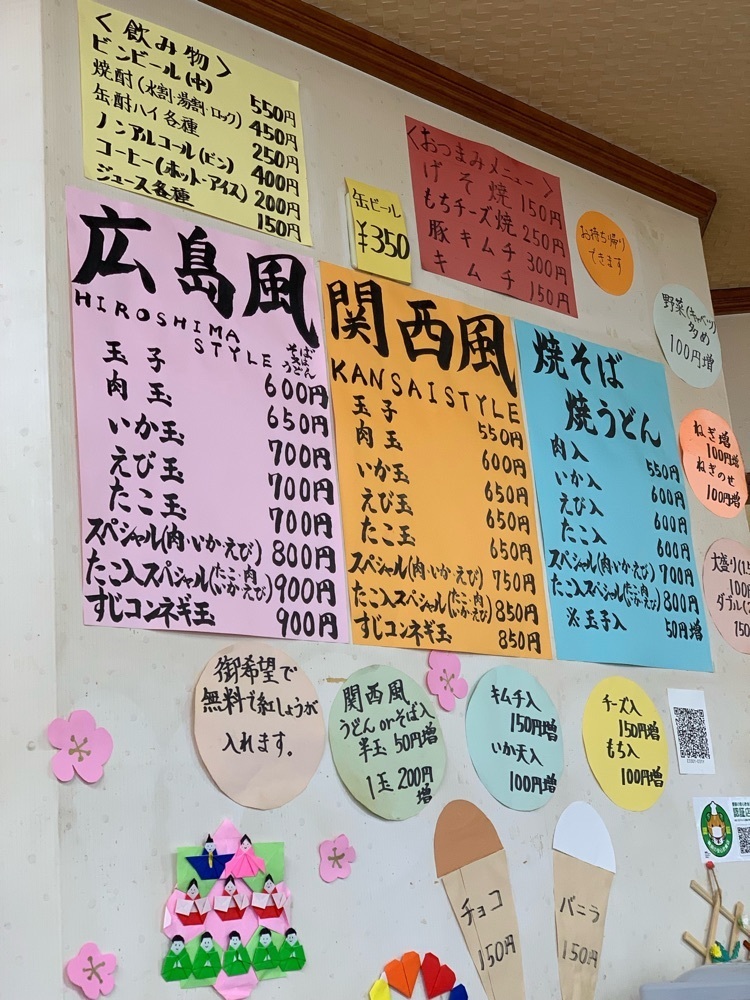 <飲み物>
ビンビール(中) 550円
焼酎(水割・湯割・ロック) 450円
缶酎ハイ各種 250円
ノンアルコール(ビン) 400円
コーヒー(ホット・アイス) 200円
ジュース各種 150円
缶ビール
¥350
<おつまみメニュー>
げそ焼 150円
もちチーズ焼 250円
豚キムチ 300円
キムチ 150円
お持ち帰り
できます
野菜(キャベツ)
多め
100円増
ねぎ増
100円増
ねぎのせ
100円増
広島風
HIROSHIMA
STYLE
そば
うどん
玉子 600円
肉玉 650円
いか玉 700円
えび玉 700円
たこ玉 700円
スペシャル(肉・いか・えび) 800円
たこ入スペシャル(たこ・肉・いか・えび) 900円
すじコンネギ玉 900円
関西風
KANSAI STYLE
玉子 550円
肉玉 600円
いか玉 650円
えび玉 650円
たこ玉 650円
スペシャル(肉・いか・えび) 750円
たこ入スペシャル(たこ・肉・いか・えび) 850円
すじコンネギ玉 850円
焼そば
焼うどん
肉入 550円
いか入 600円
えび入 600円
たこ入 600円
スペシャル(肉・いか・えび) 700円
たこ入スペシャル(たこ・肉・いか・えび) 800円
※玉子入 50円増
大盛り(1.5
100円
ダブル(2
150
御希望で
無料で紅しょうが
入れます。
関西風
うどんorそば入
半玉 50円増
1玉 200円
増
キムチ入
150円増
いか天入
100円増
チーズ入
150円増
もち入
100円増
認証店
チョコ
150円
バニラ
150円